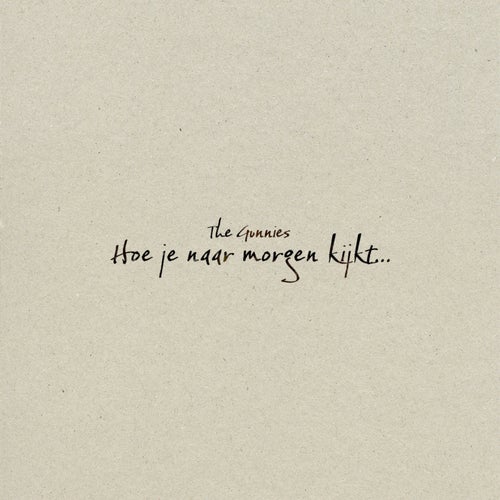 The Gunnies
Hoe je naar morgen kijkt...